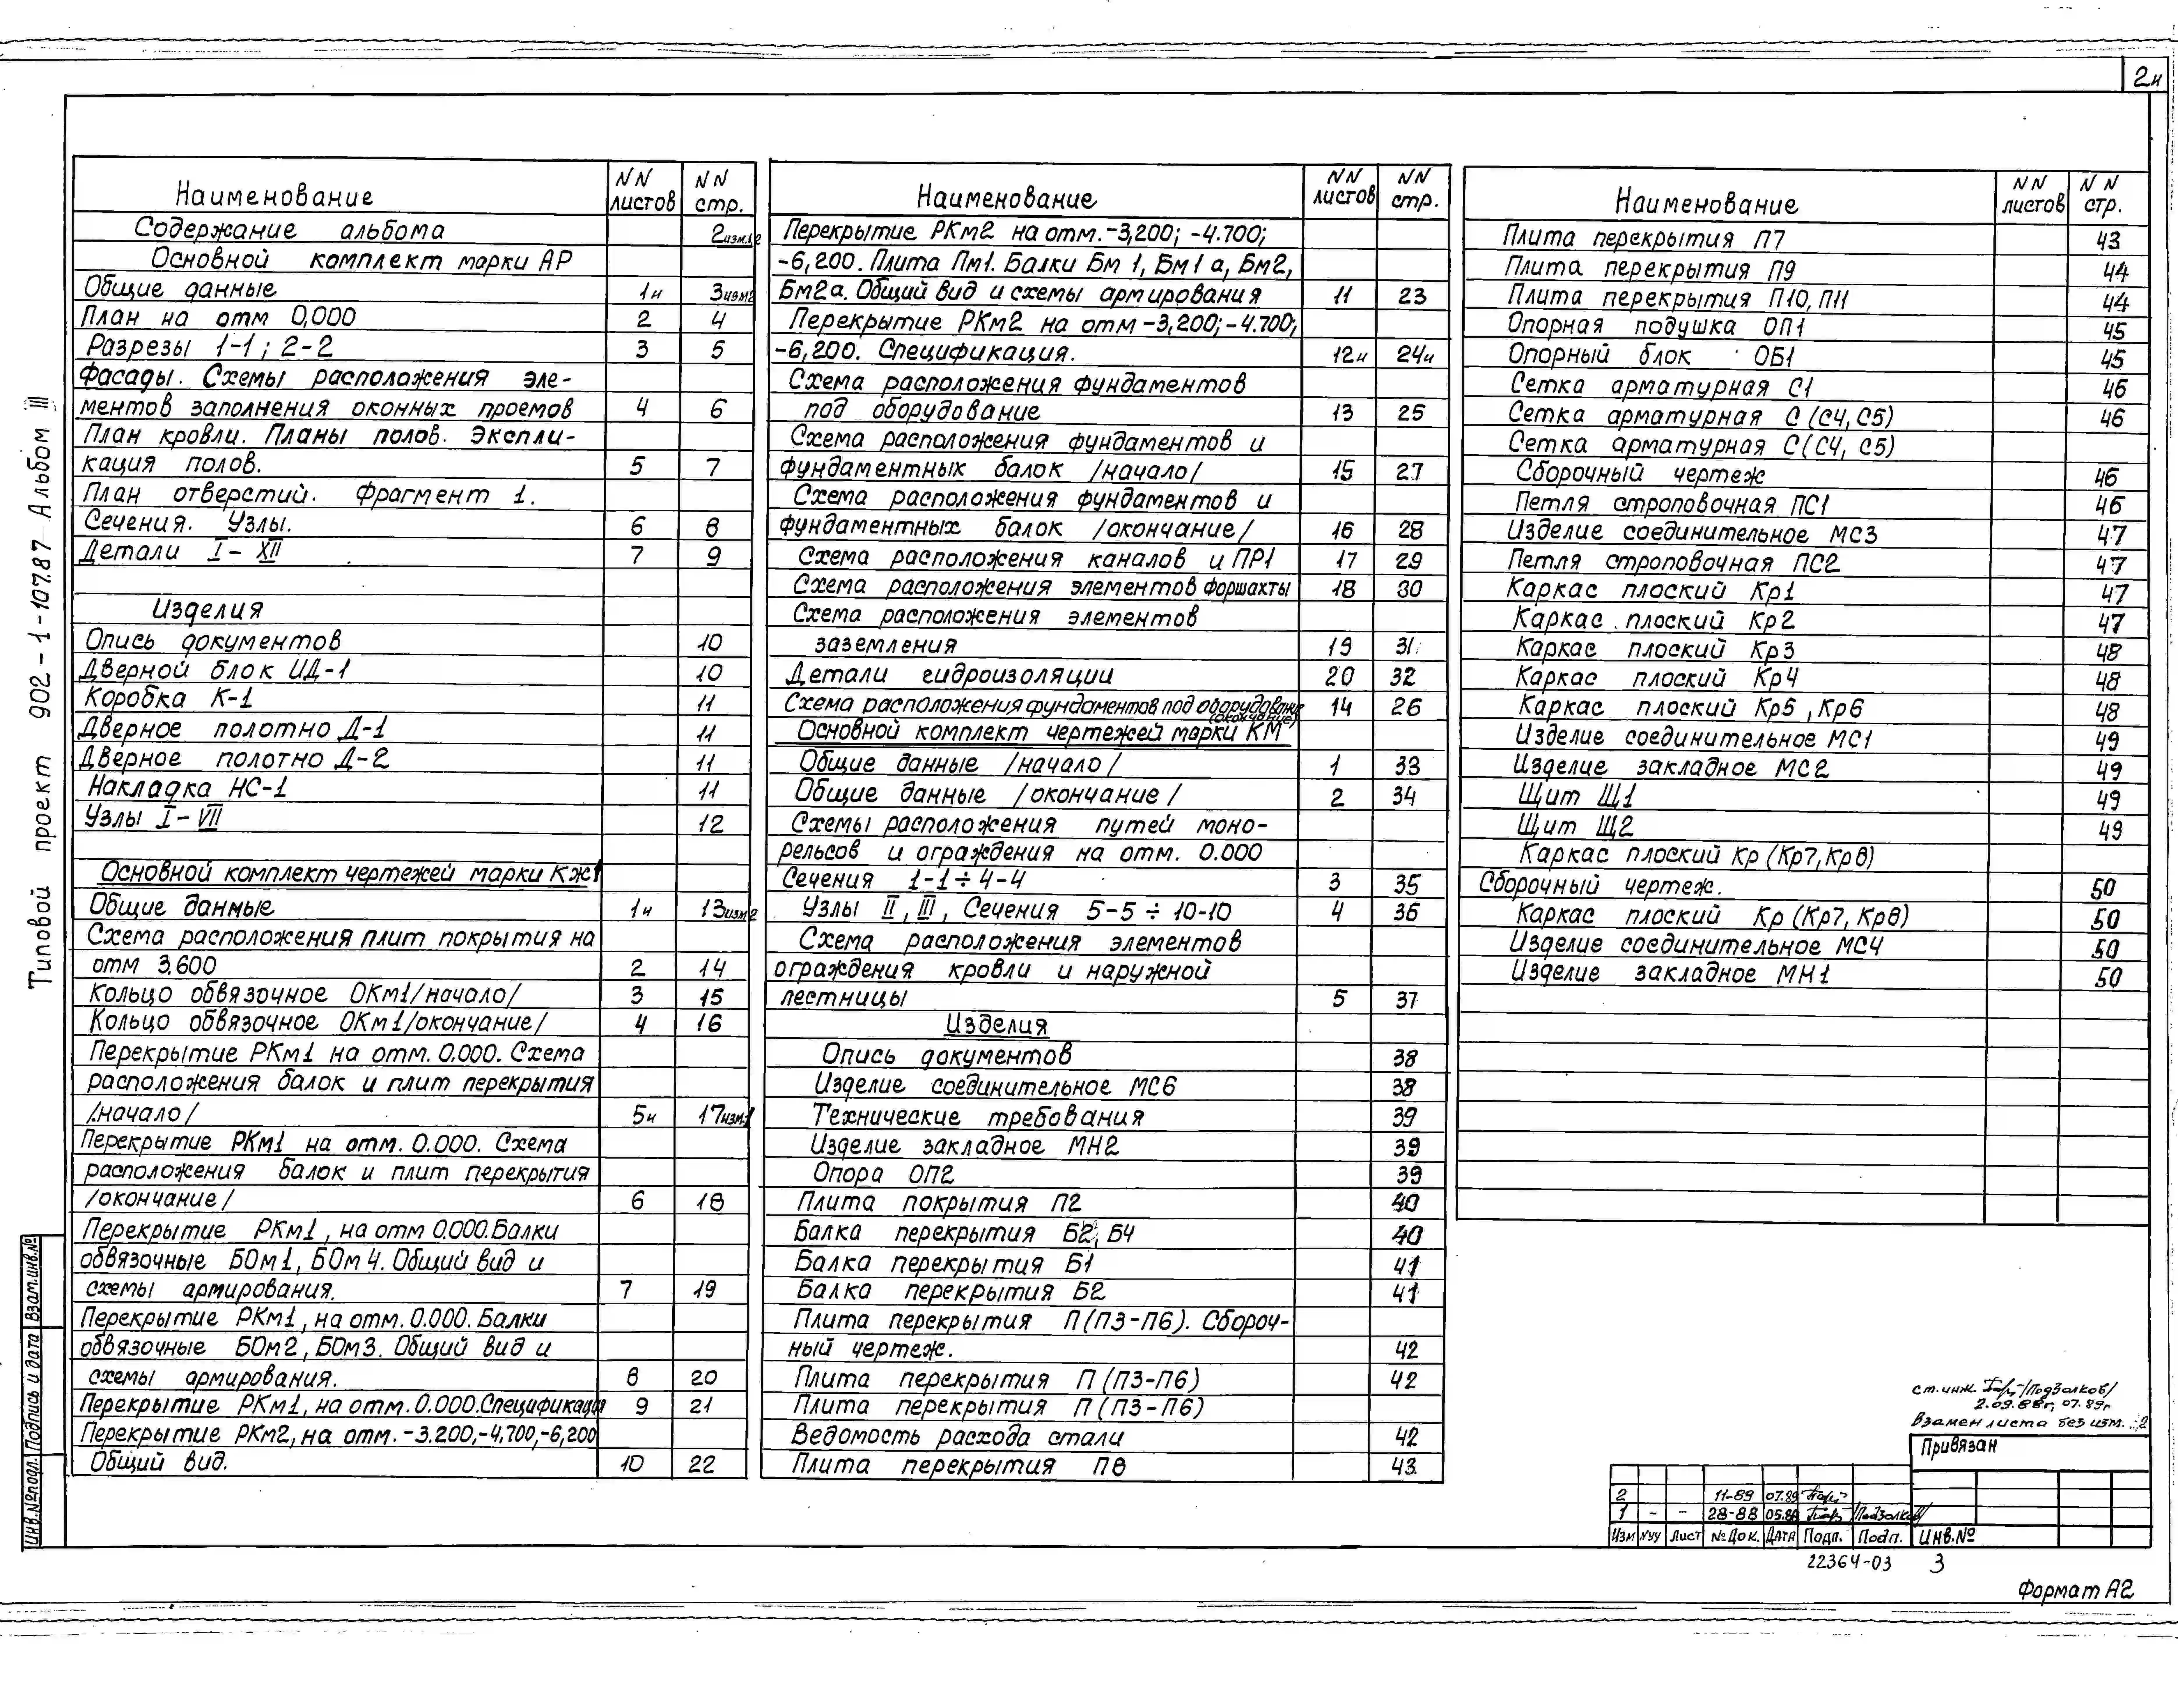 2и
Типовой проект 902-1-107.87-Альбом III
Наименование NN листов NN стр.
Содержание альбома 2изм.1,2
Основной комплект марки АР
Общие данные 1и 3изм2
План на отм 0,000 2 4
Разрезы 1-1; 2-2 3 5
Фасады. Схемы расположения эле-
ментов заполнения оконных проемов 4 6
План кровли. Планы полов. Экспли-
кация полов. 5 7
План отверстий. Фрагмент 1.
Сечения. Узлы. 6 8
Детали I - XII 7 9
Изделия
Опись документов 10
Дверной блок ИД-1 10
Коробка К-1 11
Дверное полотно Д-1 11
Дверное полотно Д-2 11
Накладка НС-1 11
Узлы I - VII 12
Основной комплект чертежей марки КЖ1
Общие данные 1и 13изм2
Схема расположения плит покрытия на
отм 3,600 2 14
Кольцо обвязочное ОКм1/начало/ 3 15
Кольцо обвязочное ОКм1/окончание/ 4 16
Перекрытие РКм1 на отм. 0.000. Схема
расположения балок и плит перекрытия
/начало/ 5и 17изм.1
Перекрытие РКм1 на отм. 0.000. Схема
расположения балок и плит перекрытия
/окончание/ 6 18
Перекрытие РКм1, на отм 0.000. Балки
обвязочные БОм1, БОм4. Общий вид и
схемы армирования. 7 19
Перекрытие РКм1, на отм. 0.000. Балки
обвязочные БОм2, БОм3. Общий вид и
схемы армирования. 8 20
Перекрытие РКм1, на отм. 0.000. Спецификация 9 21
Перекрытие РКм2, на отм. -3.200, -4,700, -6,200
Общий вид. 10 22
Наименование NN листов NN стр.
Перекрытие РКм2 на отм. -3,200; -4.700;
-6,200. Плита Пм1. Балки Бм 1, Бм1а, Бм2,
Бм2а. Общий вид и схемы армирования 11 23
Перекрытие РКм2 на отм -3,200; -4.700;
-6,200. Спецификация. 12и 24и
Схема расположения фундаментов
под оборудование 13 25
Схема расположения фундаментов и
фундаментных балок /начало/ 15 27
Схема расположения фундаментов и
фундаментных балок /окончание/ 16 28
Схема расположения каналов и ПР1 17 29
Схема расположения элементов форшахты 18 30
Схема расположения элементов
заземления 19 31
Детали гидроизоляции 20 32
Схема расположения фундаментов под оборудование (окончание) 14 26
Основной комплект чертежей марки КМ
Общие данные /начало/ 1 33
Общие данные /окончание/ 2 34
Схемы расположения путей моно-
рельсов и ограждения на отм. 0.000
Сечения 1-1 ÷ 4-4 3 35
Узлы II, III, Сечения 5-5 ÷ 10-10 4 36
Схема расположения элементов
ограждения кровли и наружной
лестницы 5 37
Изделия
Опись документов 38
Изделие соединительное МС6 38
Технические требования 39
Изделие закладное МН2 39
Опора ОП2 39
Плита покрытия П2 40
Балка перекрытия Б2, Б4 40
Балка перекрытия Б1 41
Балка перекрытия Б2 41
Плита перекрытия П(П3-П6). Сбороч-
ный чертеж. 42
Плита перекрытия П (П3-П6) 42
Плита перекрытия П (П3-П6)
Ведомость расхода стали 42
Плита перекрытия П8 43
Наименование NN листов NN стр.
Плита перекрытия П7 43
Плита перекрытия П9 44
Плита перекрытия П10, П11 44
Опорная подушка ОП1 45
Опорный блок ОБ1 45
Сетка арматурная С1 46
Сетка арматурная С (С4, С5) 46
Сетка арматурная С(С4, С5)
Сборочный чертеж 46
Петля строповочная ПС1 46
Изделие соединительное МС3 47
Петля строповочная ПС2 47
Каркас плоский Кр1 47
Каркас плоский Кр2 47
Каркас плоский Кр3 48
Каркас плоский Кр4 48
Каркас плоский Кр5, Кр6 48
Изделие соединительное МС1 49
Изделие закладное МС2 49
Щит Щ1 49
Щит Щ2 49
Каркас плоский Кр (Кр7, Кр8)
Сборочный чертеж. 50
Каркас плоский Кр (Кр7, Кр8) 50
Изделие соединительное МС4 50
Изделие закладное МН1 50
ст. инж. /Подзолков/
2.09.88г, 07.89г
Взамен листа без изм. 2
Привязан
2 11-89 07.89
1 - - 28-88 05.88 /Подзолков/
Изм Nуч Лист №Док. Дата Подп. Подп. Инв.№
22364-03 3
Формат А2
Инв.№подл. Подпись и дата Взам.инв.№